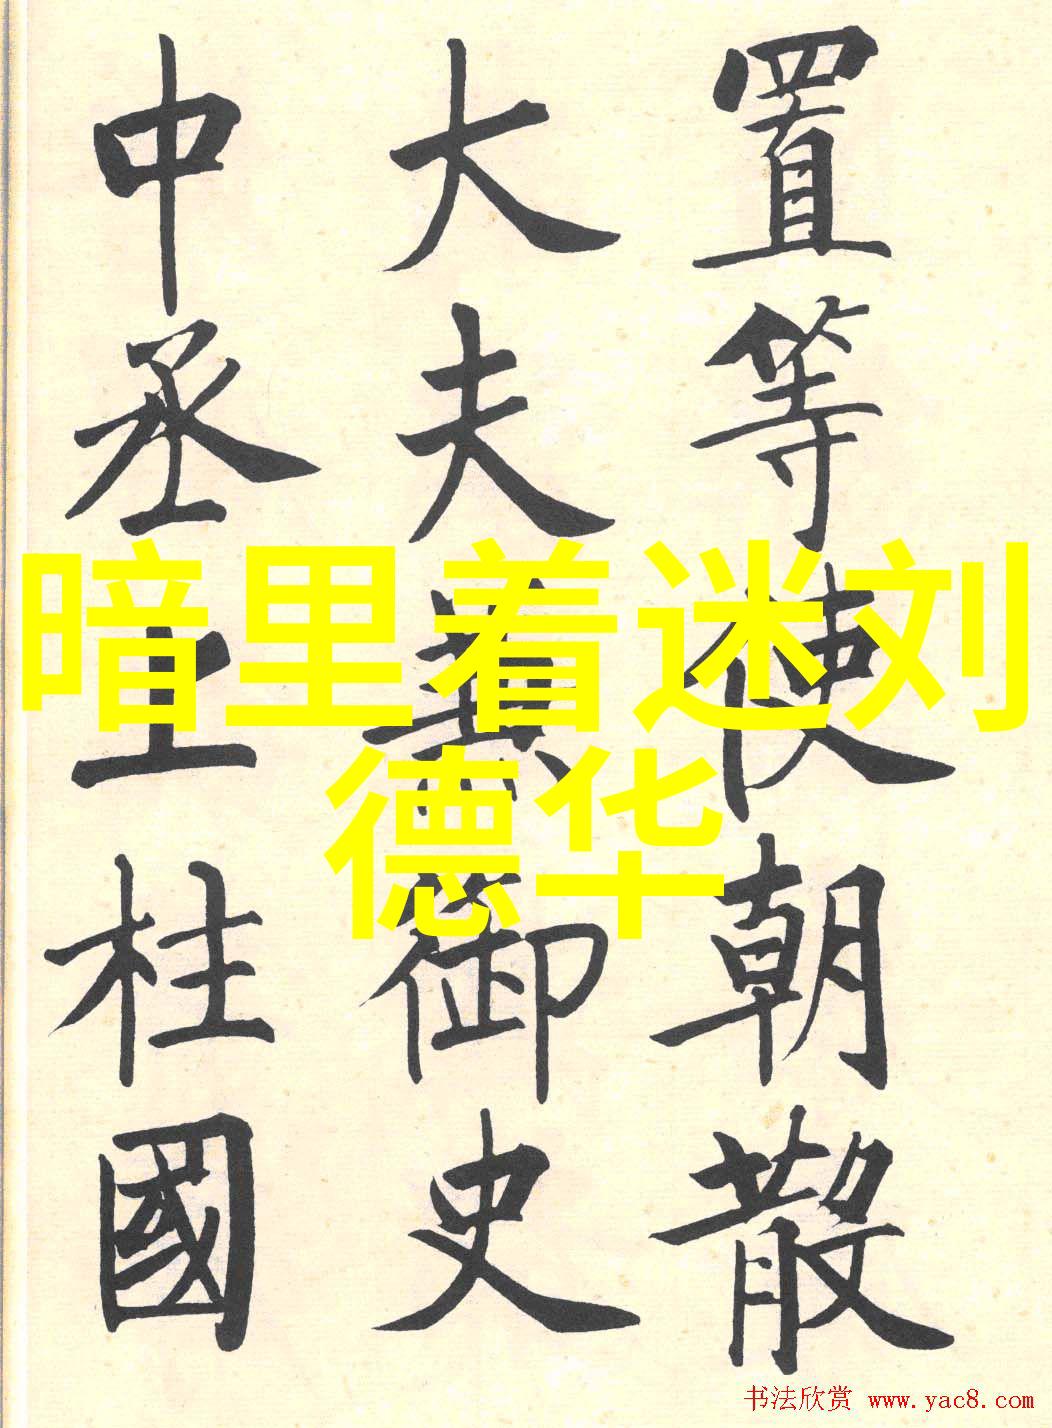 置等使朝散
大夫兼御史
中丞上柱國
暗里着迷刘
德华
书法欣赏 www.yac8.com